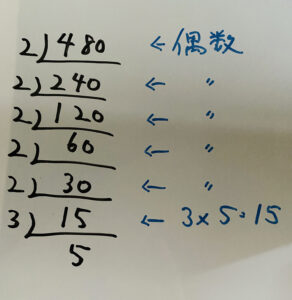 2)480 ← 偶数
2)240 ← 〃
2)120 ← 〃
2)60 ← 〃
2)30 ← 〃
3)15 ← 3×5=15
5